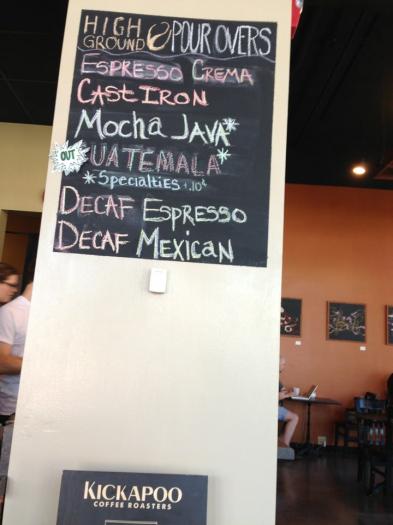 HIGH GROUND POUR OVERS
ESPRESSO CREMA
CAST IRON
Mocha JAVA*
OUT UATEMALA*
*Specialties +.10¢
DECAF ESPRESSO
DECAF MEXICAN
KICKAPOO
COFFEE ROASTERS